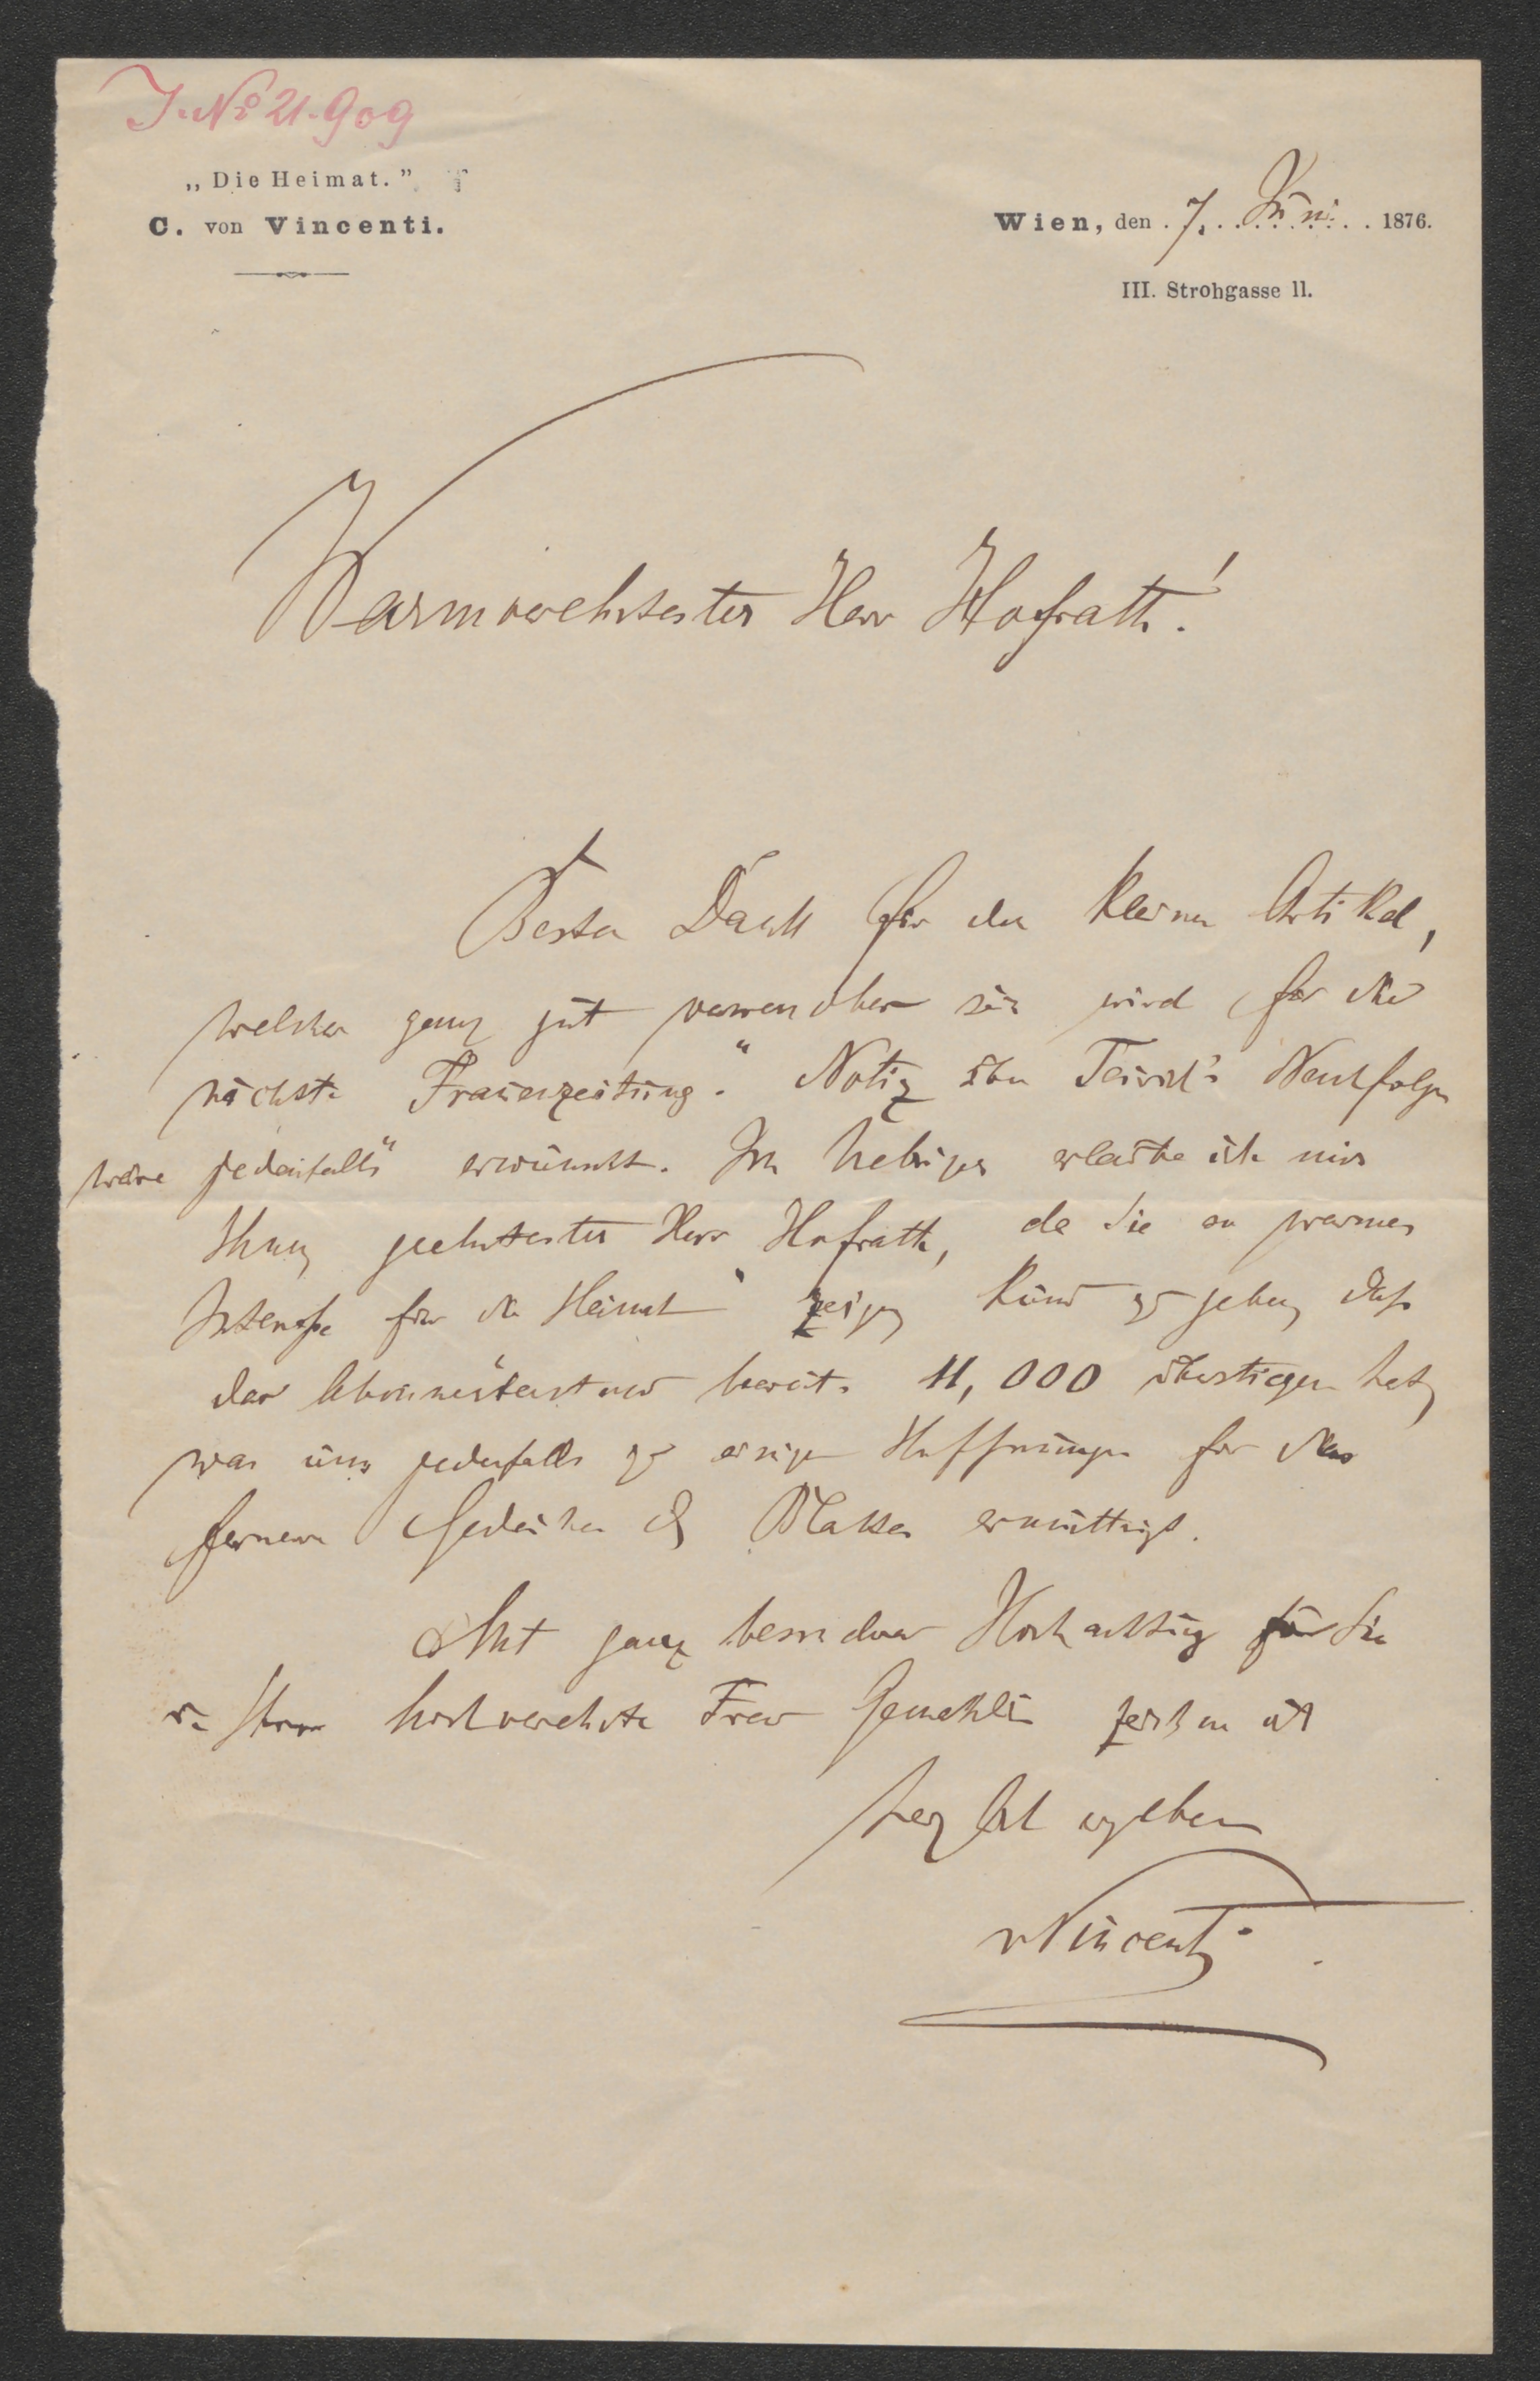 J. No 21.909
„Die Heimat."
C. von Vincenti.
Wien, den 7. Juni 1876.
III. Strohgasse 11.
Warmverehrtester Herr Hofrath!
Besten Dank für den kleinen Artikel,
welcher ganz gut verwendbar sein wird für die
nächste Frauenzeitung." Notiz über
wäre jedenfalls erwünscht. Im Uebrigen erlaube ich mir
Ihnen, geehrtester Herr Hofrath, da Sie so warmes
Interesse für die Heimat" zeigen, kund zu geben, daß
der Abonnentenstand bereits 11,000 überstiegen hat,
was uns jedenfalls zu einigen Hoffnungen für das
fernere Gedeihen des Blattes ermuthigt.
Mit ganz besonderer Hochachtung für Sie
u. Ihre hochverehrte Frau Gemahlin zeichne ich
herzlichst ergeben
vVincenti